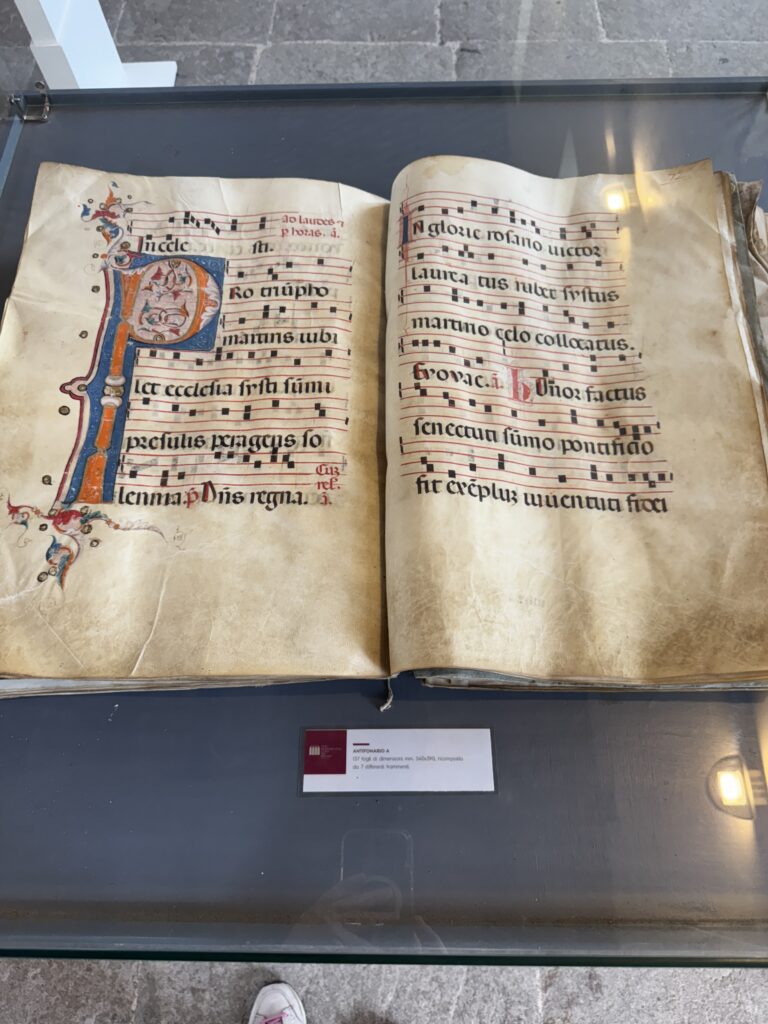 Ad laudes ⁊
p horas. a̅.
In cele sti.
PRo triu̅pho
martiris iubi
let ecclesia systi su̅mi
presulis peragens so
lenma. p̅ Dn̅s regna.
Cur
rel̅.
a̅.
IN glorie rosario uictor
laurea tus rubet systus
martirio celo collocatus.
Euovac. a̅. hOnor factus
senectuti su̅mo pontificio
fit exe̅pluȝ iuuentuti fidei
ANTIFONARIO A
137 fogli di dimensioni mm. 560x390, ricomposto
da 7 differenti frammenti.